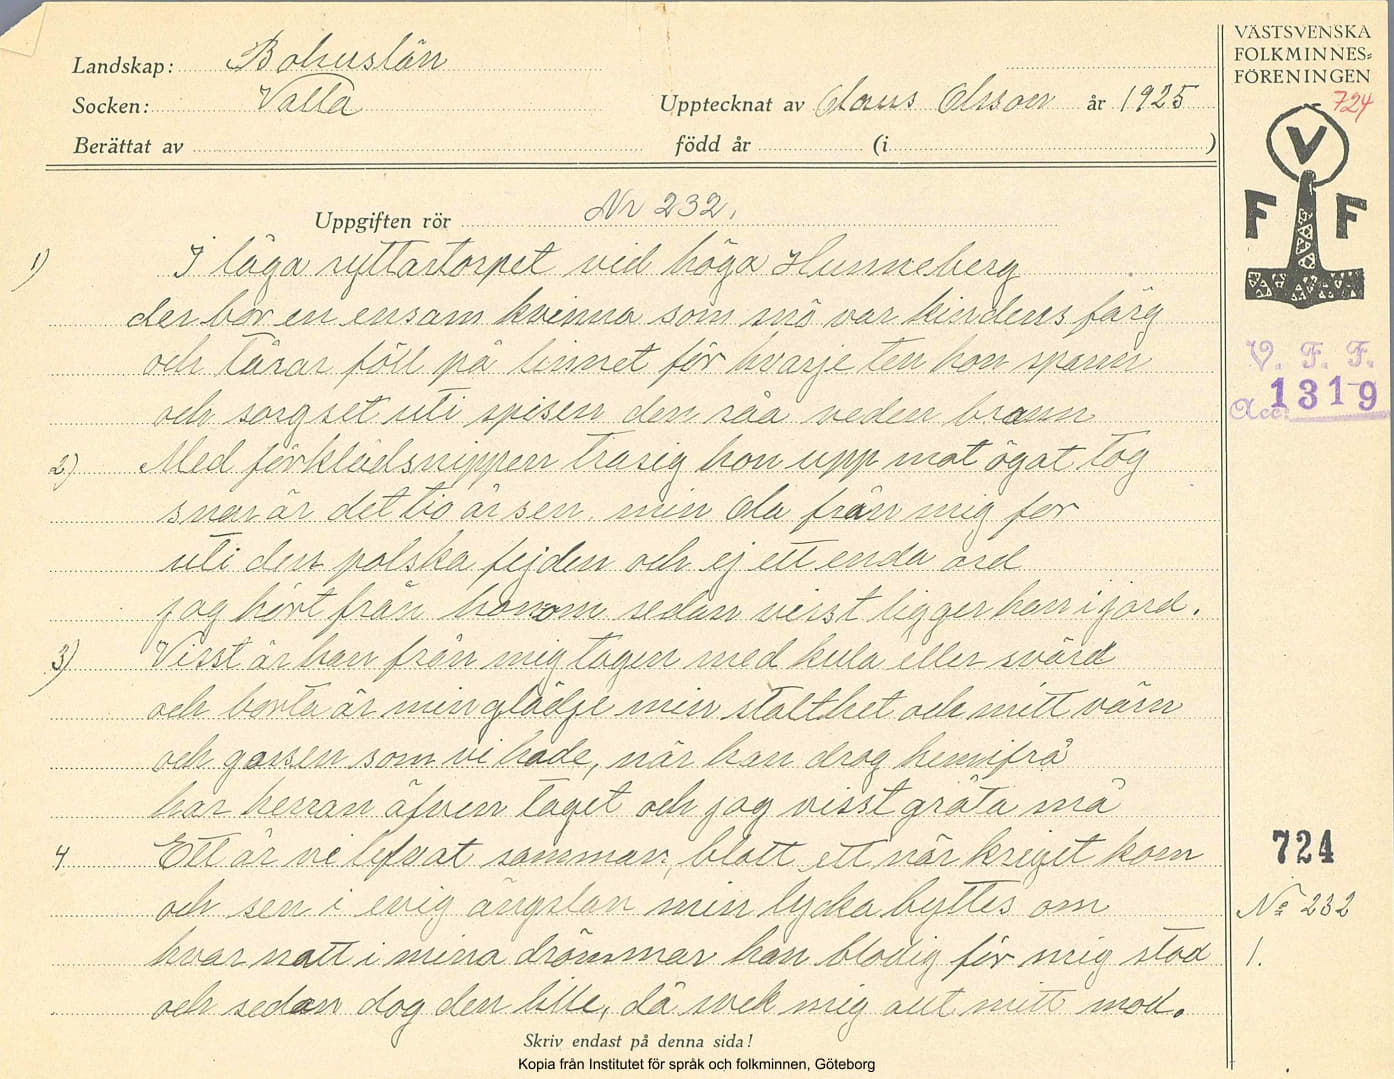 VÄSTSVENSKA
FOLKMINNES=
FÖRENINGEN
724
V
F F
Landskap: Bohuslän
Socken: Valla
Upptecknat av Claus Olsson år 1925
Berättat av
född år (i )
Uppgiften rör Nr 232.
1) I låga ryttartorpet vid höga Hunneberg
der bor en ensam kvinna som snö var kindens färg
och tårar föll på linnet för hvarje ten hon spann
och sorgset uti spisen den råa veden brann
2) Med förklädsnippen trasig hon upp mot ögat tog
snar är det tio år sen, min Ola från mig for
uti den polska fejden och ej ett enda ord
jag hört från honom sedan visst ligger han i jord.
3) Visst är han från mig tagen med kula eller svärd
och borta är min glädje min stolthet och mitt värn
och gossen som vi hade, när han drog hemifrå
har herran äfven taget och jag visst gråta må
4 Ett år vi lefvat samman, blott ett när kriget kom
och sen i evig ängslan min lycka byttes om
hvar natt i mina drömmar han blodig för mig stod
och sedan dog den lille, då svek mig allt mitt mod.
V. F. F.
Acc: 1319
724
No 232
1.
Skriv endast på denna sida!
Kopia från Institutet för språk och folkminnen, Göteborg